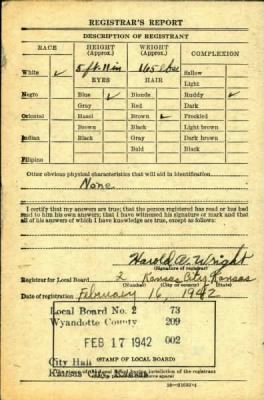 REGISTRAR'S REPORT
DESCRIPTION OF REGISTRANT
RACE HEIGHT (Approx.) WEIGHT (Approx.) COMPLEXION
White ✓ 5 ft 11 in 165 lbs Sallow
EYES HAIR Light
Negro Blue ✓ Blonde Ruddy ✓
Gray Red Dark
Oriental Hazel Brown ✓ Freckled
Brown Black Light brown
Indian Black Gray Dark brown
Bald Black
Filipino
Other obvious physical characteristics that will aid in identification
None
I certify that my answers are true; that the person registered has read or has had
read to him his own answers; that I have witnessed his signature or mark and that
all of his answers of which I have knowledge are true, except as follows:
Harold A. Wright
(Signature of registrar)
Registrar for Local Board 2 Kansas City, Kansas
(Number) (City or county) (State)
Date of registration February 16, 1942
Local Board No. 2 73
Wyandotte County 209
FEB 17 1942 002
City Hall
(STAMP OF LOCAL BOARD)
Kansas City, Kansas